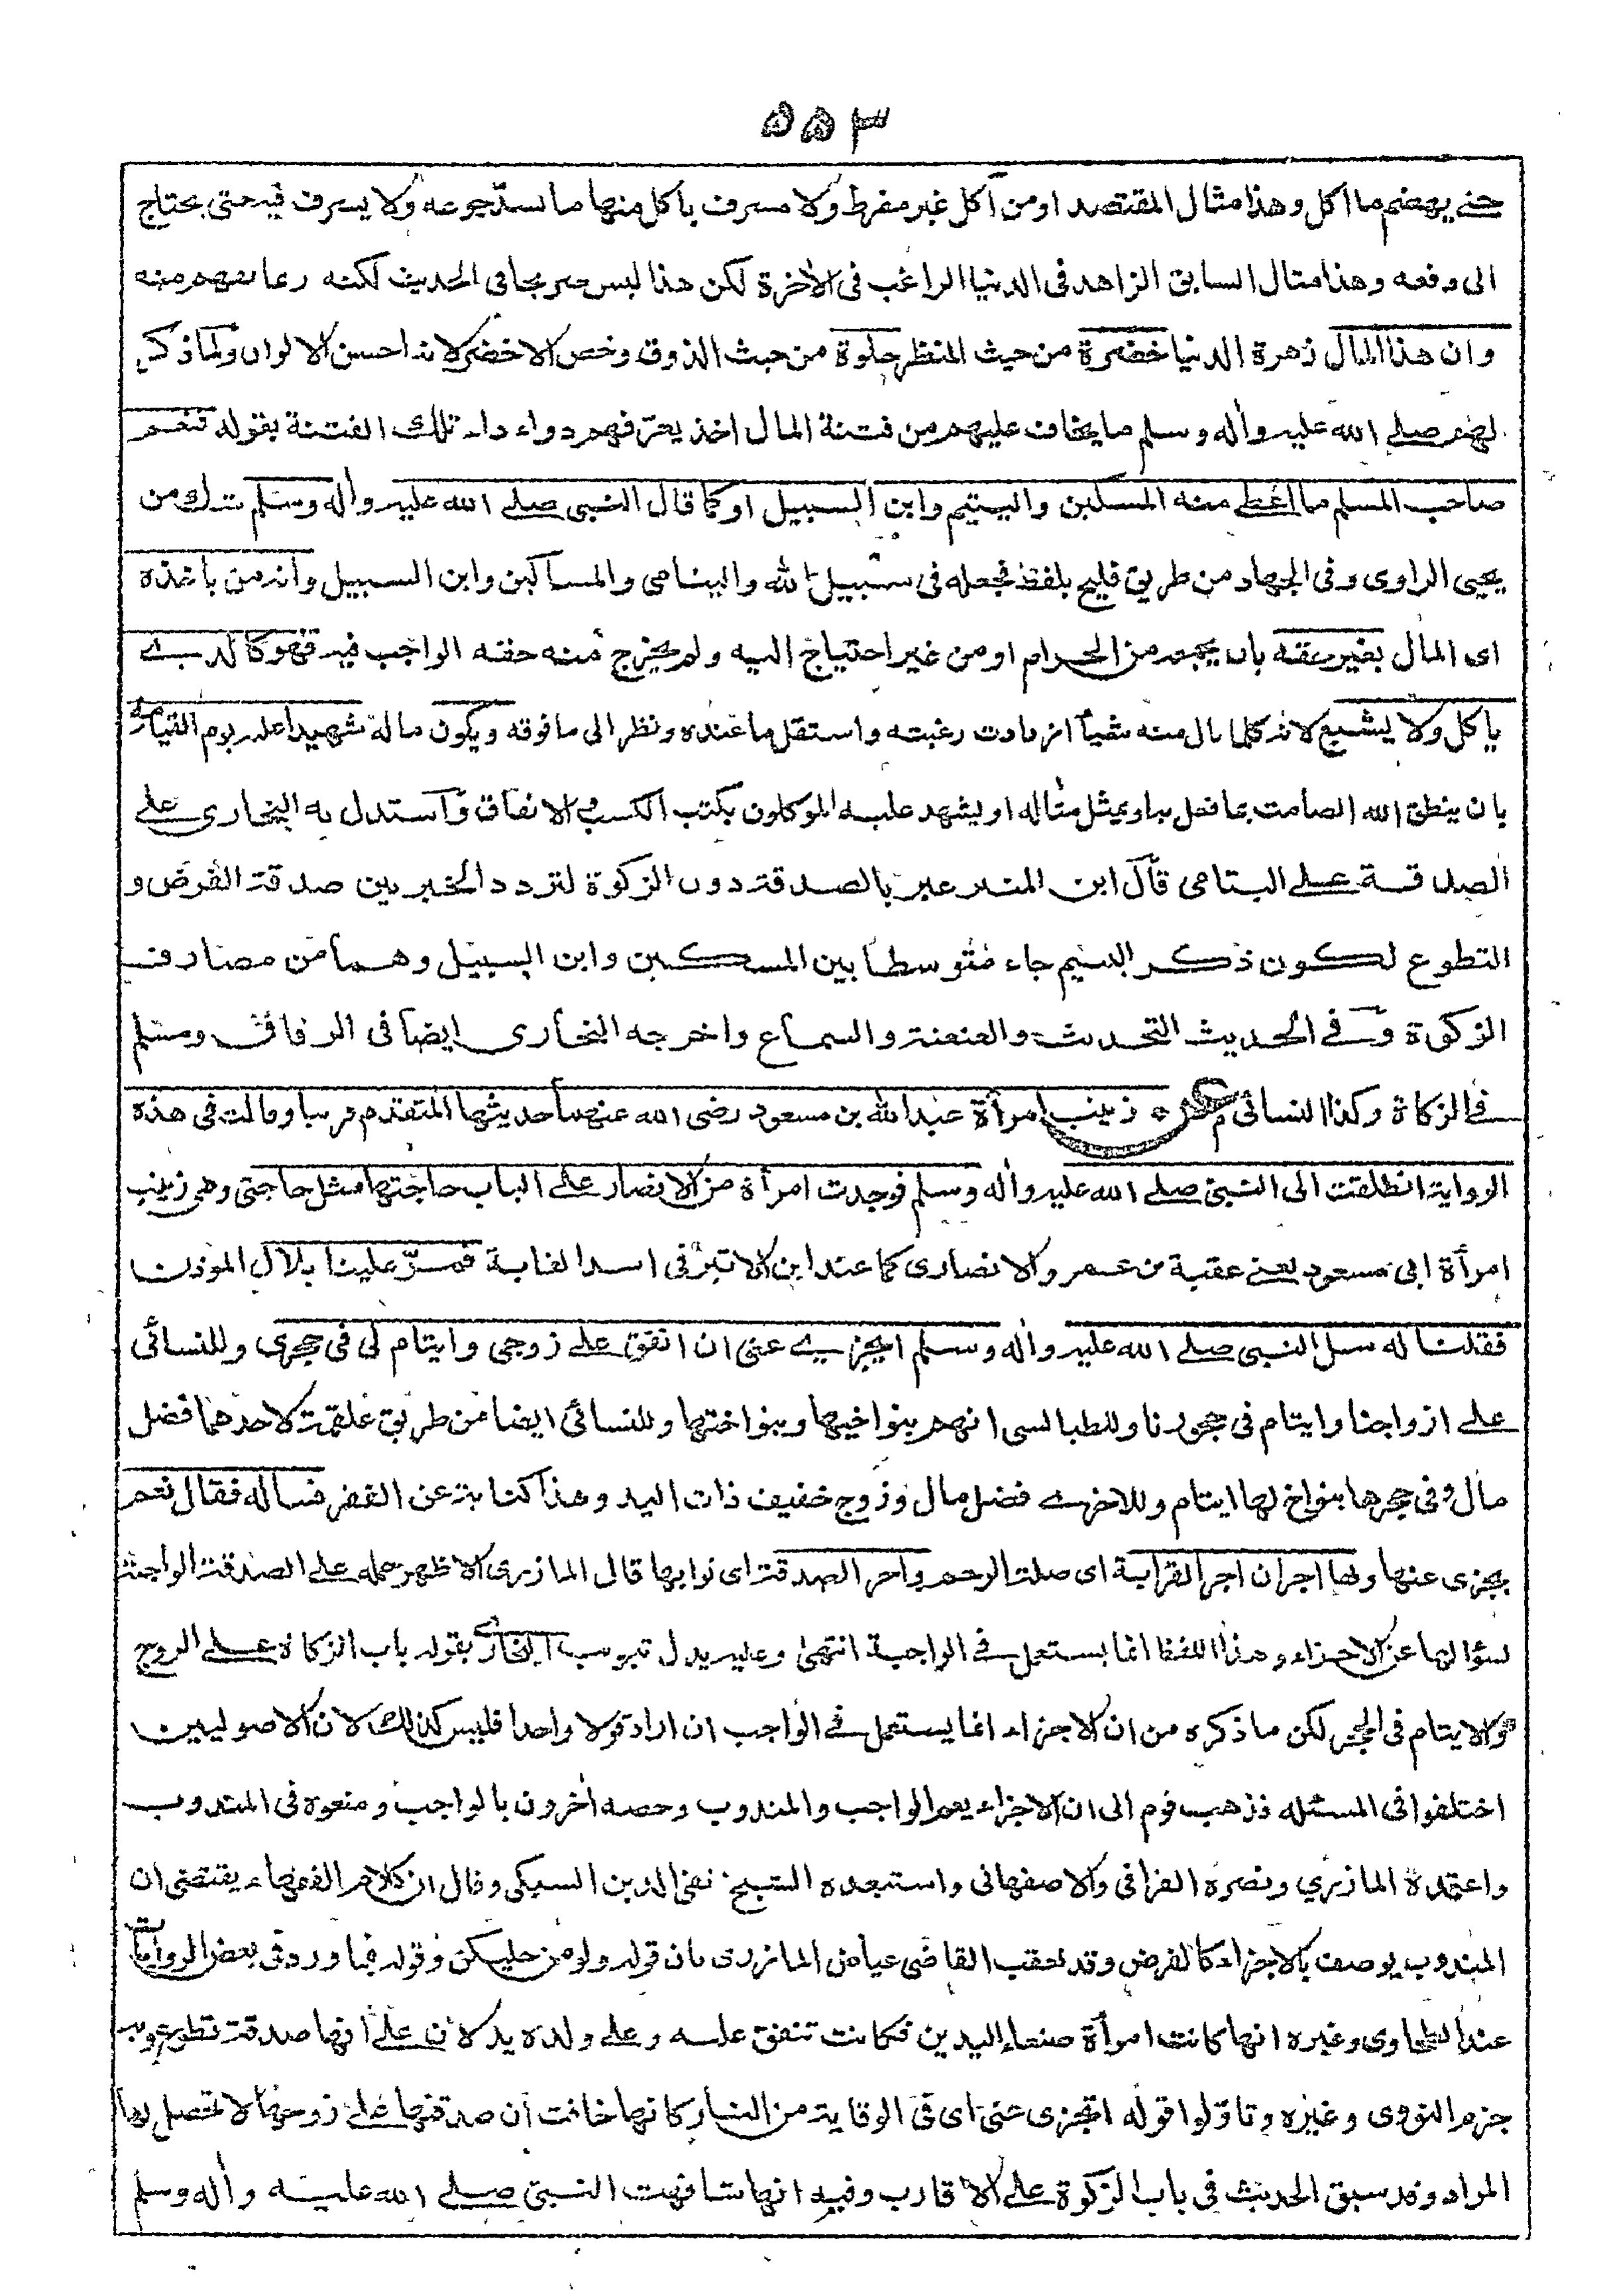 ٥٥٣
حتے يهضم ما اكل وهذا مثال المقتصد او من اكل غير مفرط ولا مسرف ياكل منها ما يسدّ جوعه ولا يسرف فيه حتى يحتاج
الى دفعه وهذا مثال السابق الزاهد فى الدنيا الراغب فى الاٰخرة لكن هذا ليس صريحا فى الحديث لكنه ربما يفهم منه
وان هذا المال زهرة الدنيا خضرة من حيث المنظر حلوة من حيث الذوق وخص الاخضر لانه احسن الالوان ولما ذكر
لهم صلے الله عليه واٰله وسلم ما يخاف عليهم من فتنة المال اخذ يعرّفهم دواء داء تلك الفتنة بقوله فنعم
صاحب المسلم ما اعطے منه المسكين واليتيم وابن السبيل او كما قال النبى صلے الله عليه واٰله وسلم شك من
يحيى الراوى وفى الجهاد من طريق فليح بلفظ فجعله فى سبيل الله واليتامى والمساكين وابن السبيل وانه من ياخذه
اى المال بغير حقه بان يجمعه من الحرام او من غير احتياج اليه ولم يخرج منه حقه الواجب فيه فهو كالذے
ياكل ولا يشبع لانه كلما نال منه شيأ ازدادت رغبته واستقل ما عنده ونظر الى ما فوقه ويكون ماله شهيدا عليه يوم القيامة
بان ينطق الله الصامت بما فعل به او يمثل مثاله او يشهد عليه الموكلون بكتب الكسب والانفاق وآستدل به البخارى علے
الصدقة علے اليتامى قآل ابن المنير عبر بالصدقة دون الزكوة لتردد الخبر بين صدقة الفرض و
التطوع لكون ذكر اليتيم جاء متوسطا بين المسكين وابن السبيل وهما من مصارف
الزكوة وفے الحديث التحديث والعنعنة والسماع واخرجه البخارى ايضا فى الرقاق ومسلم
فے الزكاة وكذا النسائى م عن زينب امرأة عبد الله بن مسعود رضى الله عنهما حديثها المتقدم قريبا وقالت فى هذه
الرواية انطلقت الى النبى صلے الله عليه واٰله وسلم فوجدت امرأة من الانصار علے الباب حاجتها مثل حاجتى وهى زينب
امرأة ابى مسعود يعنے عقبة بن عمرو الانصارى كما عند ابن الاثير فى اسد الغابة فمرّ علينا بلال المؤذن
فقلنا له سل النبى صلے الله عليه واٰله وسلم ايجزے عنى ان انفق علے زوجى وايتام لى فى حجرى وللنسائى
علے ازواجنا وايتام فى حجورنا وللطيالسى انهم بنو اخيها وبنو اختها وللنسائى ايضا من طريق علقمة لاحدهما فضل
مال وفى حجرها بنو اخ لها ايتام وللاخرے فضل مال وزوج خفيف ذات اليد وهذا كناية عن الفقر فساله فقال نعم
يجزى عنها ولها اجران اجر القرابة اى صلة الرحم واجر الصدقة اى ثوابها قال المازرى الاظهر حمله علے الصدقة الواجبة
لسؤالها عن الاجزاء وهذا اللفظ انما يستعمل فے الواجبة انتهى وعليه يدل تبويب البخارى بقوله باب الزكاة علے الزوج
والايتام فى الحجر لكن ما ذكره من ان الاجزاء انما يستعمل فے الواجب ان اراد قولا واحدا فليس كذلك لان الاصوليين
اختلفوا فى المسئله فذهب قوم الى ان الاجزاء يعم الواجب والمندوب وخصه اٰخرون بالواجب ومنعوه فى المندوب
واعتمده المازري ونصره القرافى والاصفهانى واستبعده الشيخ تقى الدين السبكى وقال ان كلام الفقهاء يقتضى ان
المندوب يوصف بالاجزاء كالفرض وقد تعقب القاضى عياض المازرى بان قوله ولو من حليكن وقوله فيما ورد فى بعض الروايات
عند الطحاوى وغيره انها كانت امرأة صنعاء اليدين فكانت تنفق عليه وعلى ولده يدلان علے انها صدقة تطوع وبه
جزم النووى وغيره وتاوّلوا قوله اتجزى عنى اى فى الوقاية من النار كانها خافت ان صدقتها علے زوجها لا تحصل لها
المراد وقد سبق الحديث فى باب الزكوة علے الاقارب وفيه انها شافهت النبى صلے الله عليه واٰله وسلم